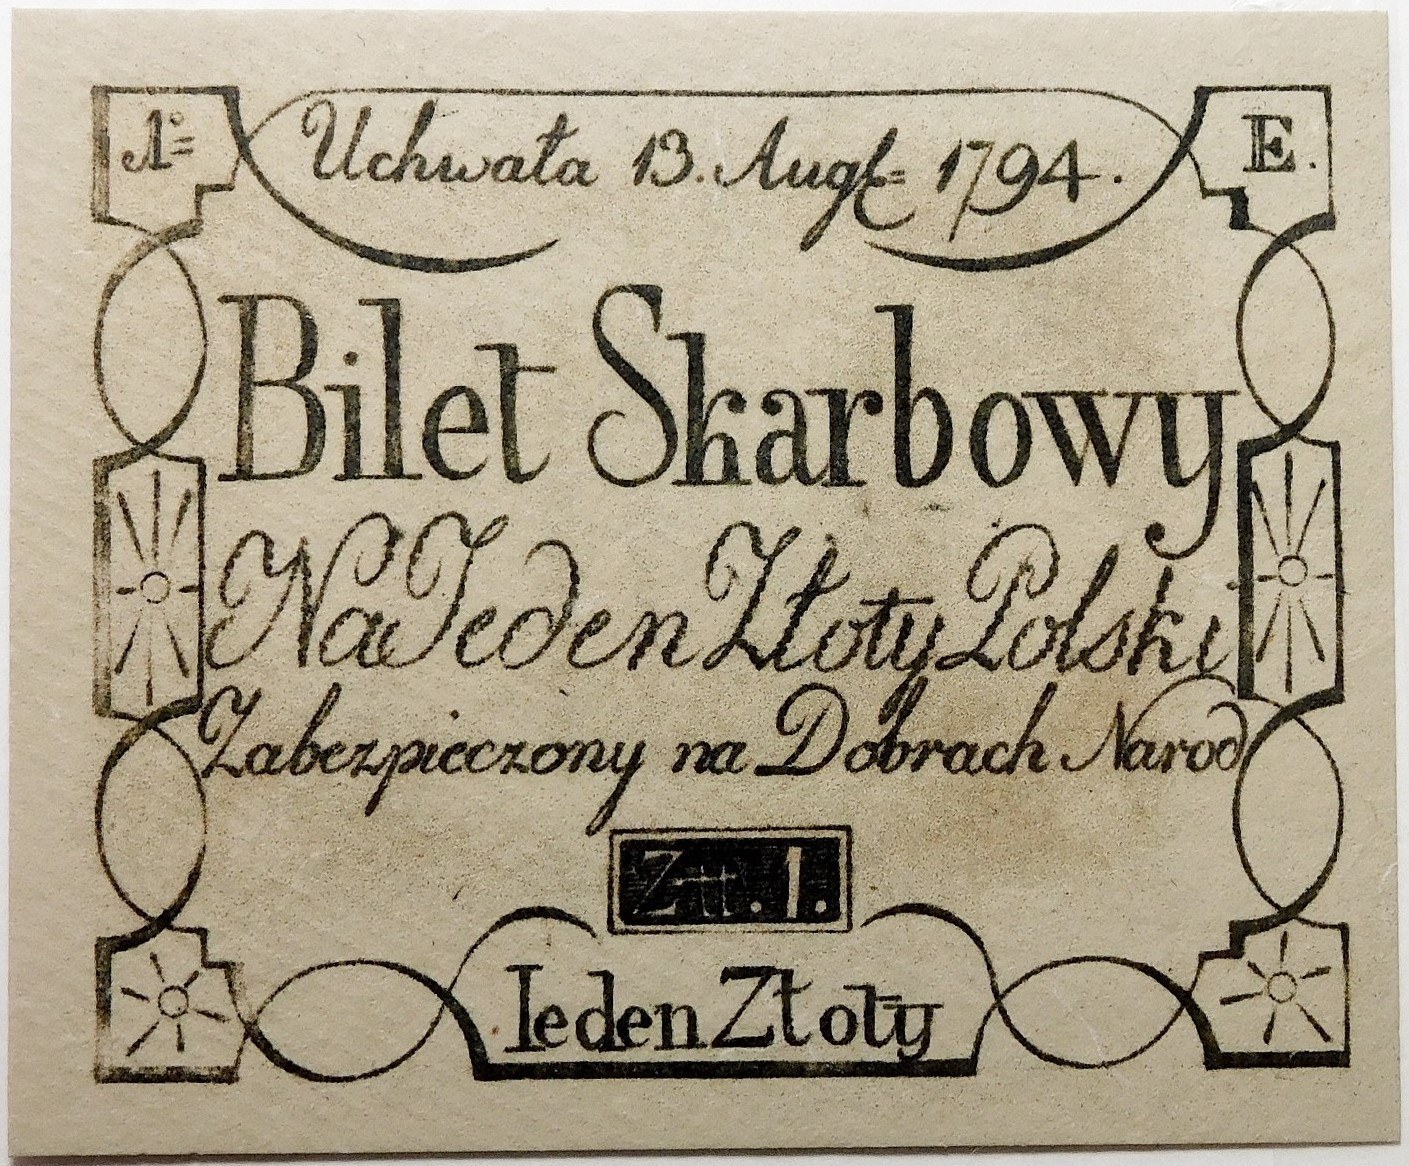 1º E.
Uchwała 13. Augt= 1794.
Bilet Skarbowy
Na Jeden Złoty Polski
Zabezpieczony na Dobrach Narod
Złł. 1.
Ieden Złoty